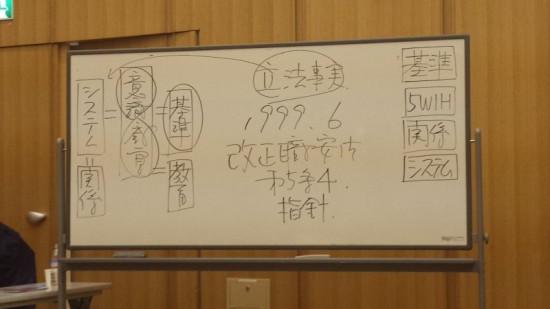 システム=関係
=
意識
教育
=
基準
=
教育
立法事実
1,999.6
改正暗安法
わち争4.
指針
基準
5W1H
関係
システム